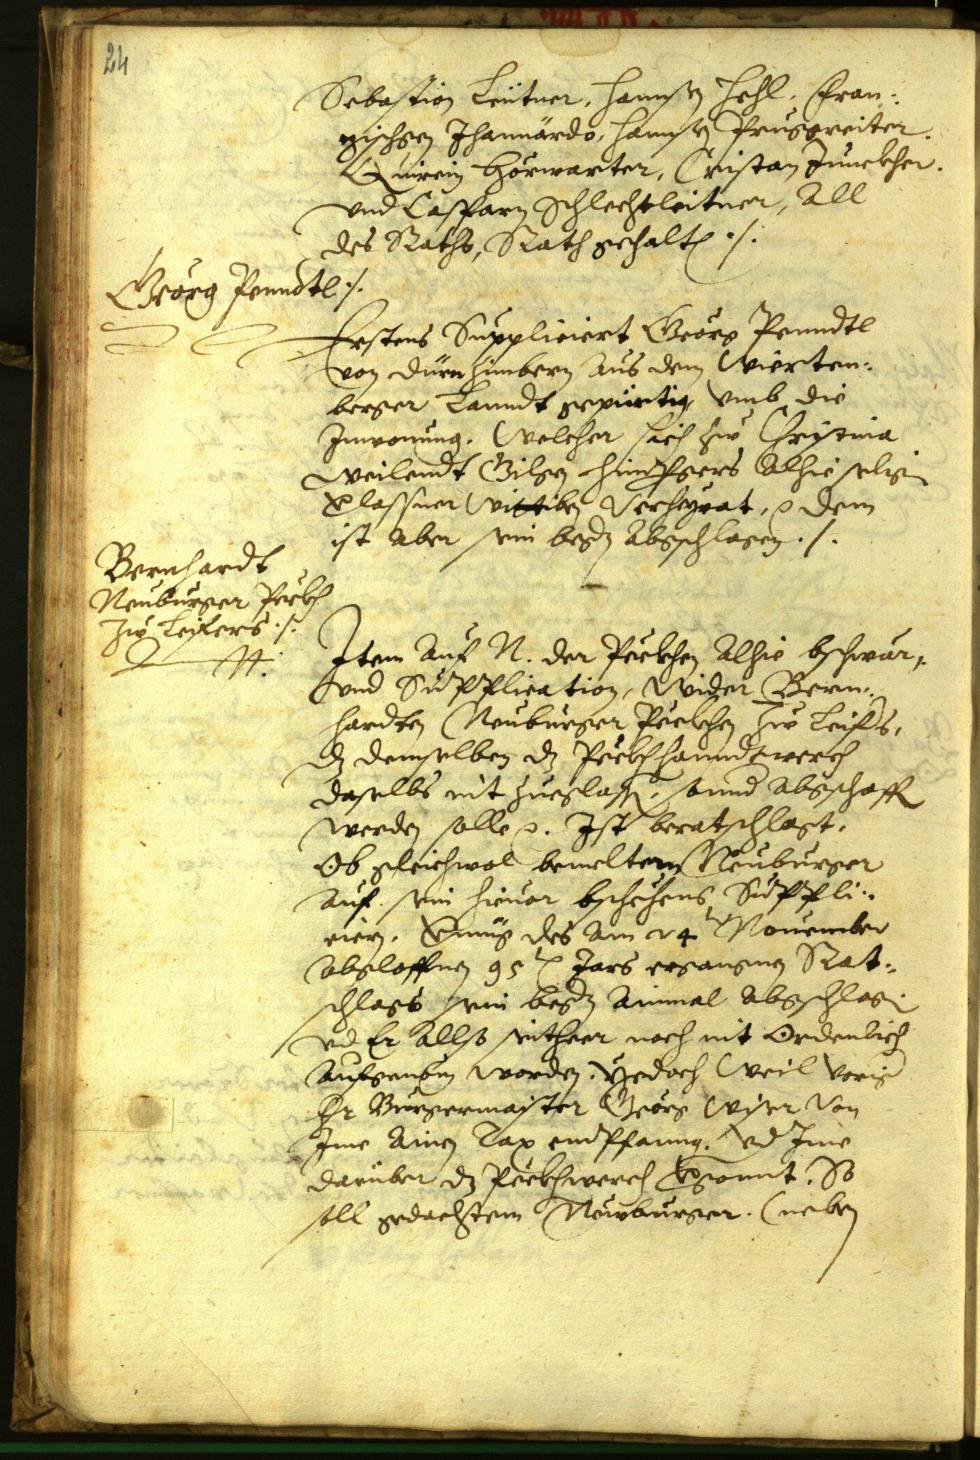 24
Sebastian Leütner, Hannsen Hehl, Fran-
zischgen Jhanärdo, Hannsen Prugreiter.
Quirein Hörwarter, Cristan Junckher.
vnd Casparn Schlechtleitner, All
des Raths, Rath gehalten ./.
Georg Penndtl ./.
Erstens Suppliciert Georg Penndtl
von Dürnhimbern aus dem Wierten-
berger Lanndt gepürtig, vmb die
Inwonung. Welcher sich zu Christina
weilendt Gilgen alhie selige
glassner Wittiben Verheyrat, dem
ist aber sein begern Abgschlagen ./.
Bernhardt
Neuburger Peckh
zu Leifers ./.
Item auf N. der Peckhen alhie bschwär,
vnd Supplication, Wider Bern-
hardten Neuburger Peckhen zu Leifers,
dz demselben dz Peckhhanndtwerch
daselbs nit zuegelassen, sonnder abgschafft
werden solle. Ist beratschlagt.
Ob gleichwol bemeltem Neuburger
auf sein hieuor bschehens Suppli-
ciern. Vermüg des am 14 November
abgeloffnen 95 Jars ergangnen Rat-
schlags sein begern ainmal abgschlagen
vnd Er allso seitheer noch nit Ordenlich
aufgenomen worden. Yedoch weil vorig
Hr Burgermaister Georg Wiser von
Ime ainen Tax empfanng. vnd Ime
darüber dz Peckhwerch vergonnt. So
soll gedachtem Newburger. (neben